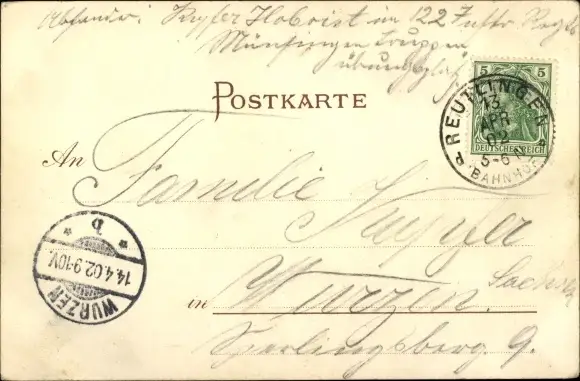 Absender: Kupfer Hoboist im 122 Inftr Regts
Münsingen Truppen
übungsplatz
POSTKARTE
5 5
DEUTSCHES REICH
REUTLINGEN
13
APR
02
5-6
BAHNHOF
An Familie
Kupfer
in Wurzen. Sachsen
Sperlingsberg 9.
b
14.4.02.9-10V.
WURZEN